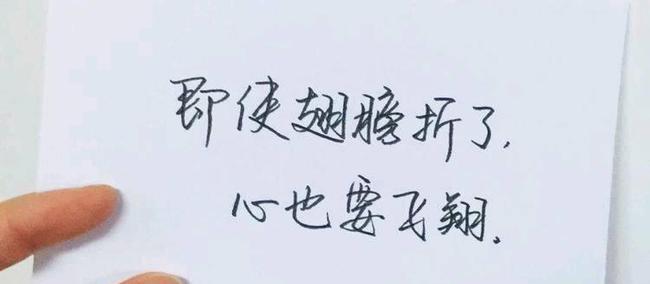 即使翅膀折了，
心也要飞翔。